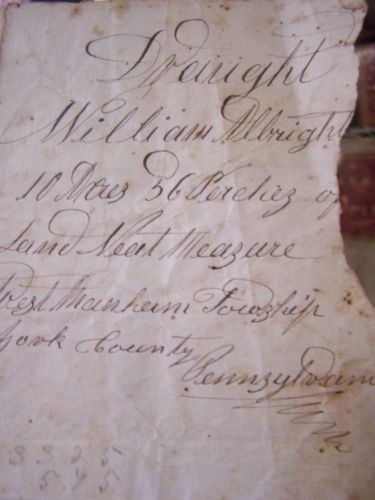 Draught
William Albright
10 Acres 56 Perches of
Land Neat Measure
West Manheim Township
York County
Pennsylvani
3 3 2 5
5 4 5